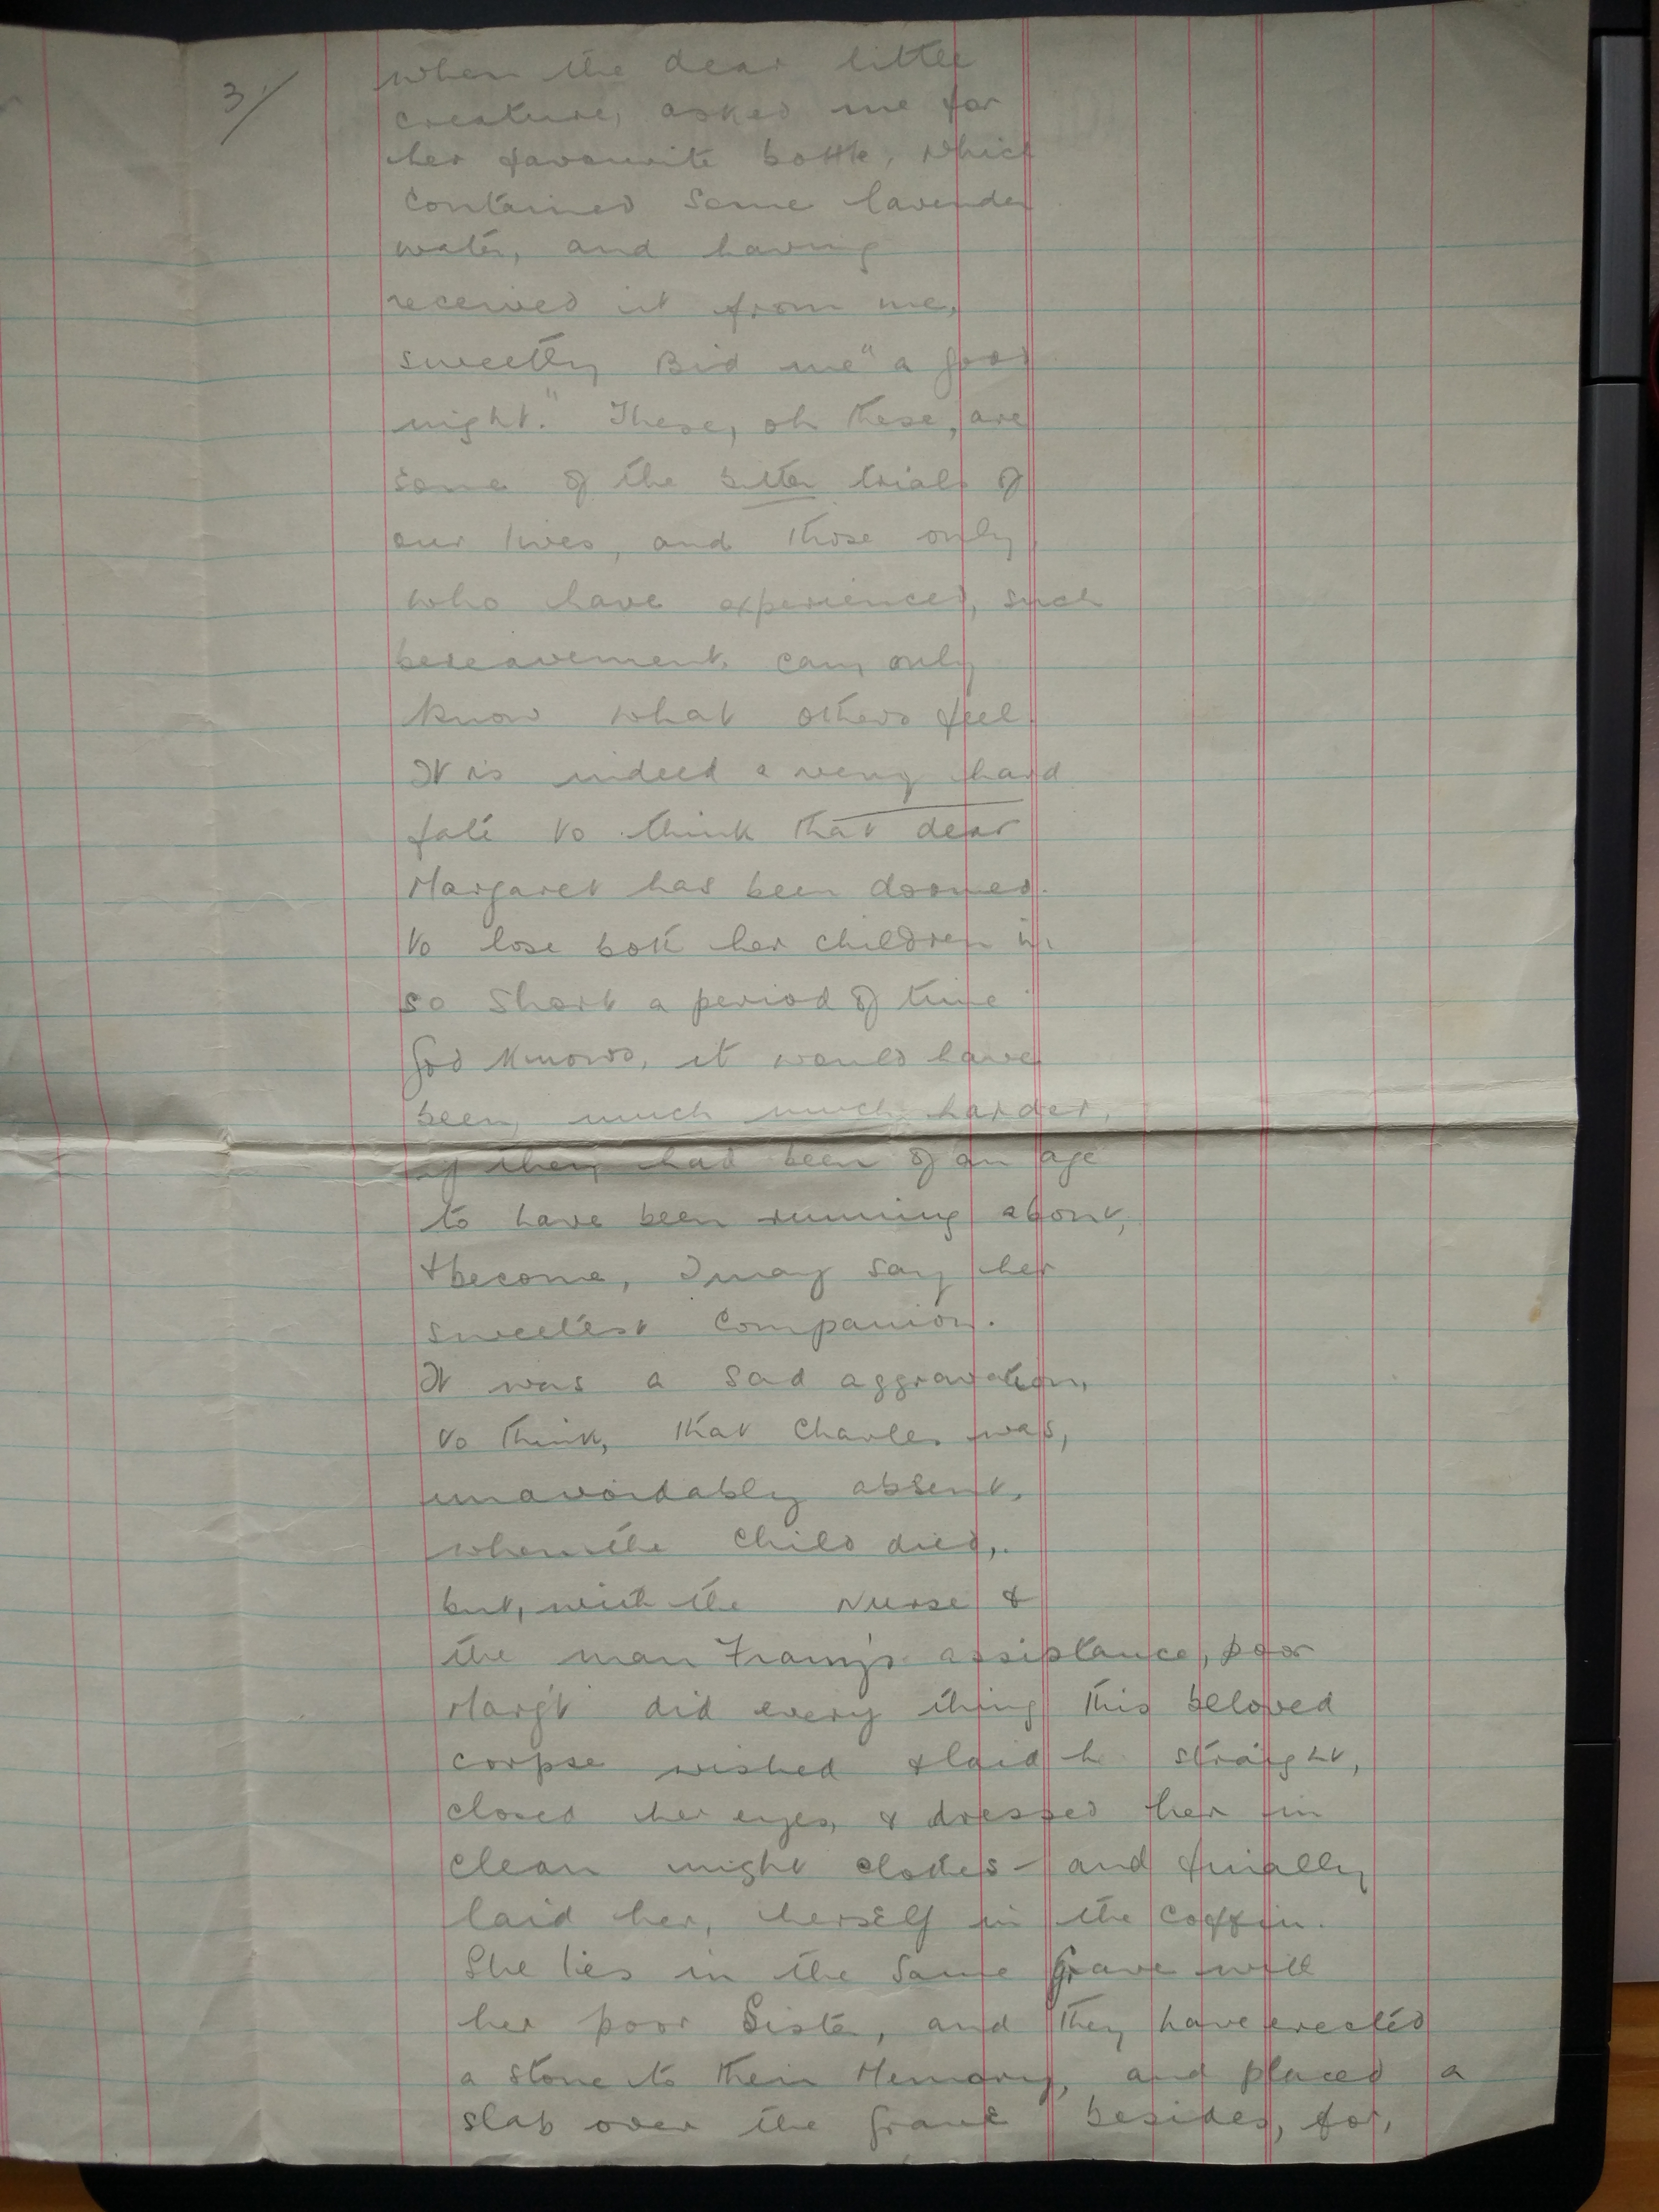 3/
when the dear little
creature, asked me for
her favourite bottle, which
contained some lavender
water, and having
received it from me,
sweetly Bid me "a good
night." These, oh these, are
some of the bitter trials of
our lives, and those only,
who have experienced, such
bereavement, can, only
know what others feel.
It is indeed a very hard
fate to think that dear
Margaret has been doomed.
to lose both her children in
so short a period of time
God knows, it would have
been, much much harder,
if they had been of an age
to have been running about,
& become, I may say her
sweetest companion.
It was a sad aggravation,
to think, that Charles was,
unavoidably absent,
when the child died,.
but, with the Nurse &
the man assistance, poor
Marg't did every thing this beloved
corpse wished & laid h straight,
closed her eyes, & dressed her in
clean night clothes - and finally
laid her, herself in the coffin.
She lies in the same Grave with
her poor Sister, and they have erected
a stone to their Memory, and placed a
slab over the Grave besides, for,